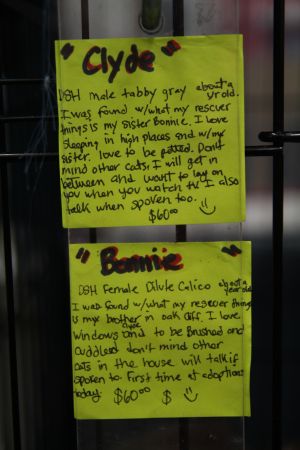 "Clyde"
DSH male tabby gray about a yr old.
I was found w/what my rescuer
things is my sister Bonnie. I love
sleeping in high places and w/my
sister. love to be petted. Don't
mind other cats, I will get in
between and want to lay on
you when you watch TV I also
talk when spoken too.
$60.00
"Bonnie"
DSH Female Dilute Calico about a year old
I was found w/what my rescuer things
is my brother in oak cliff. I love
Clyde
windows and to be brushed and
cuddled don't mind other
cats in the house will talk if
spoken to. First time at adoptions
today. $60.00 $